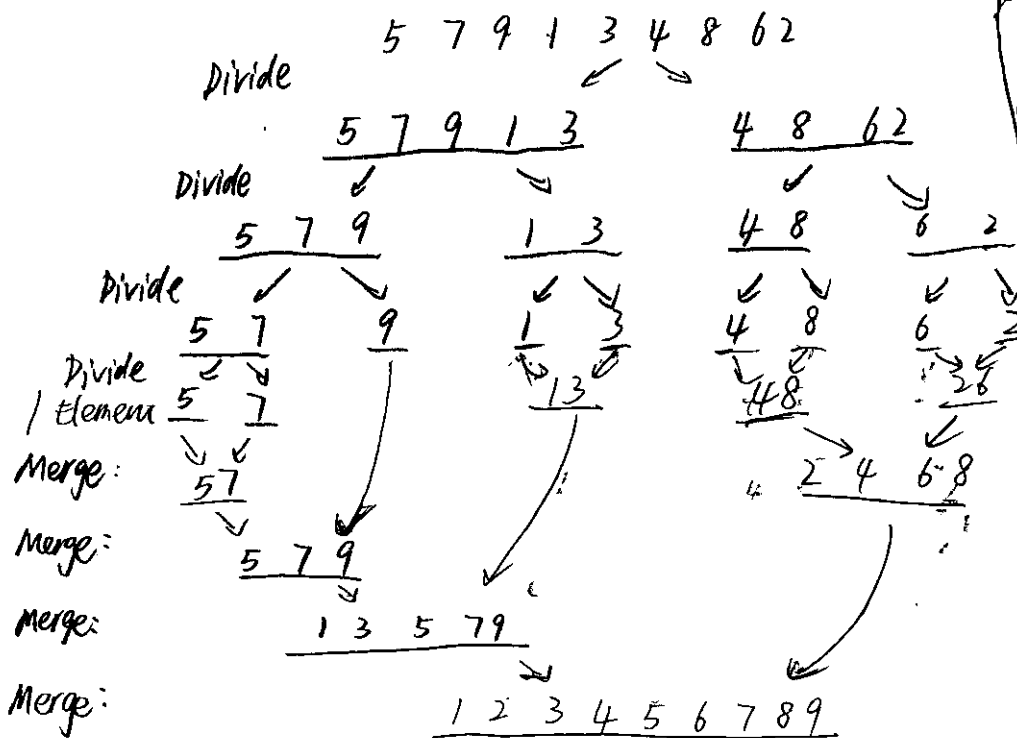 5 7 9 1 3 4 8 6 2
Divide
5 7 9 1 3 4 8 6 2
Divide
5 7 9 1 3 4 8 6 2
Divide
5 7 9 1 3 4 8 6 2
Divide
1 Element 5 7 1 3 4 8 2 6
Merge: 5 7 2 4 6 8
Merge: 5 7 9
Merge: 1 3 5 7 9
Merge: 1 2 3 4 5 6 7 8 9